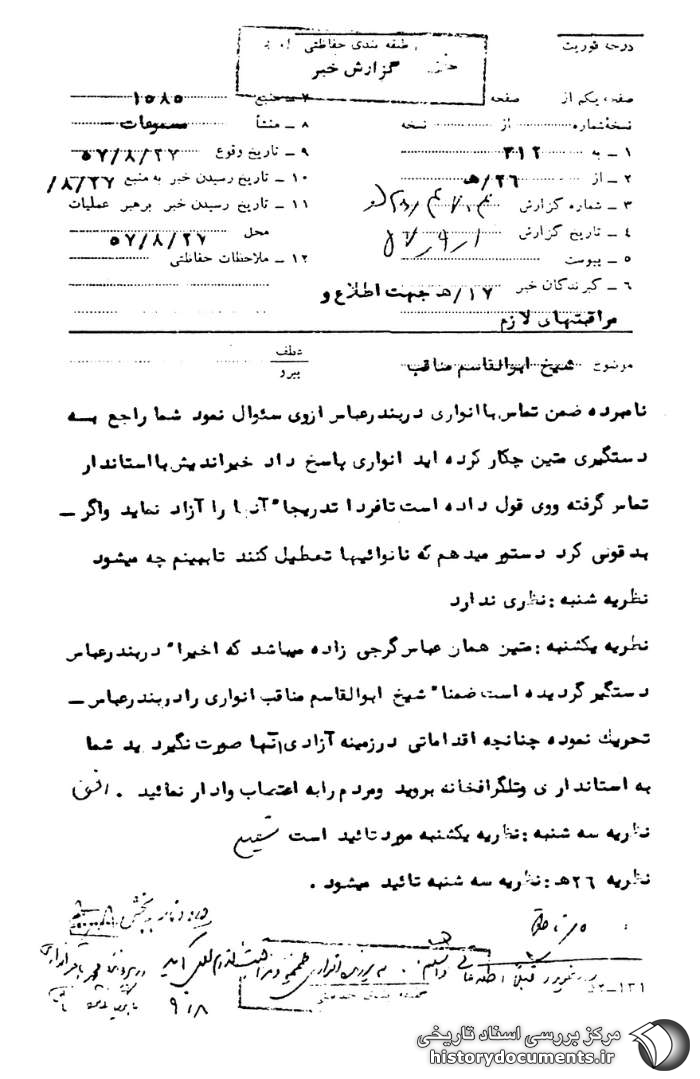 درجه فوریت
طبقه بندی حفاظتی
گزارش خبر
صفحه یکم از صفحه
۷ـ منبع ۱۰۸۵
نسخه شماره از نسخه
۸ ـ منشأ مسموعات
۱ ـ به ۳۱۲
۹ ـ تاریخ وقوع ۵۷/۸/۲۷
۲ ـ از ۲۶/هـ
۱۰ ـ تاریخ رسیدن خبر به منبع ۸/۲۷/
۳ ـ شماره گزارش
۱۱ ـ تاریخ رسیدن خبر برهبر عملیات
محل ۵۷/۸/۲۷
۴ ـ تاریخ گزارش
۵ ـ پیوست
۱۲ ـ ملاحظات حفاظتی
۶ ـ گیرندگان خبر ۱۷/هـ جهت اطلاع و
مراقبتهای لازم
موضوع شیخ ابوالقاسم مناقب
عطف
پیرو
نامبرده ضمن تماس با انواری در بندرعباس ازوی سئوال نمود شما راجع بسه
دستگیری متین چکار کرده اید انواری پاسخ داد خیراندیش با استاندار
تماس گرفته ووی قول داده است تافردا تدریجا" آنها را آزاد نماید واگر ـ
بدقولی کرد دستور میدهم که نانوائیها تعطیل کنند تاببینم چه میشود
نظریه شنبه : نظری ندارد
نظریه یکشنبه : متین همان عباس گرجی زاده میباشد که اخیرا" دربندرعباس
دستگیر گردیده است ضمنا" شیخ ابوالقاسم مناقب انواری رادربندرعباس ـ
تحریک نموده چنانچه اقداماتی درزمینه آزادی آنها صورت نگیرد بد شما
به استانداری وتلگرافخانه بروید ومردم رابه اعتصاب وادار نمائید .
نظریه سه شنبه : نظریه یکشنبه مورد تائید است
نظریه ۲۶هـ : نظریه سه شنبه تائید میشود .
۹/۸
۵۲ـ۱۳۱
مرکز بررسی اسناد تاریخی
historydocuments.ir